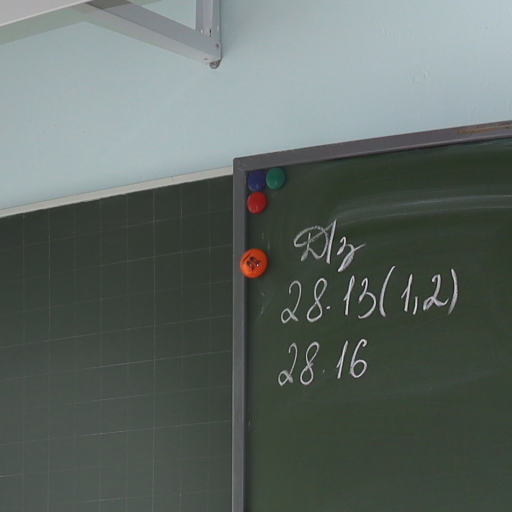 Д/з
28.13(1,2)
28.16